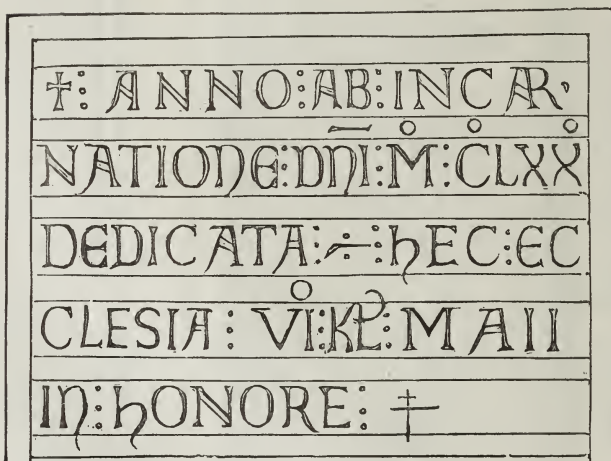 ✝: ANNO:AB:INCAR·
NATIONE:DNI:M:CLXX
DEDICATA:÷:HEC:EC
CLESIA: VI:KL:MAII
IN:HONORE: ✝